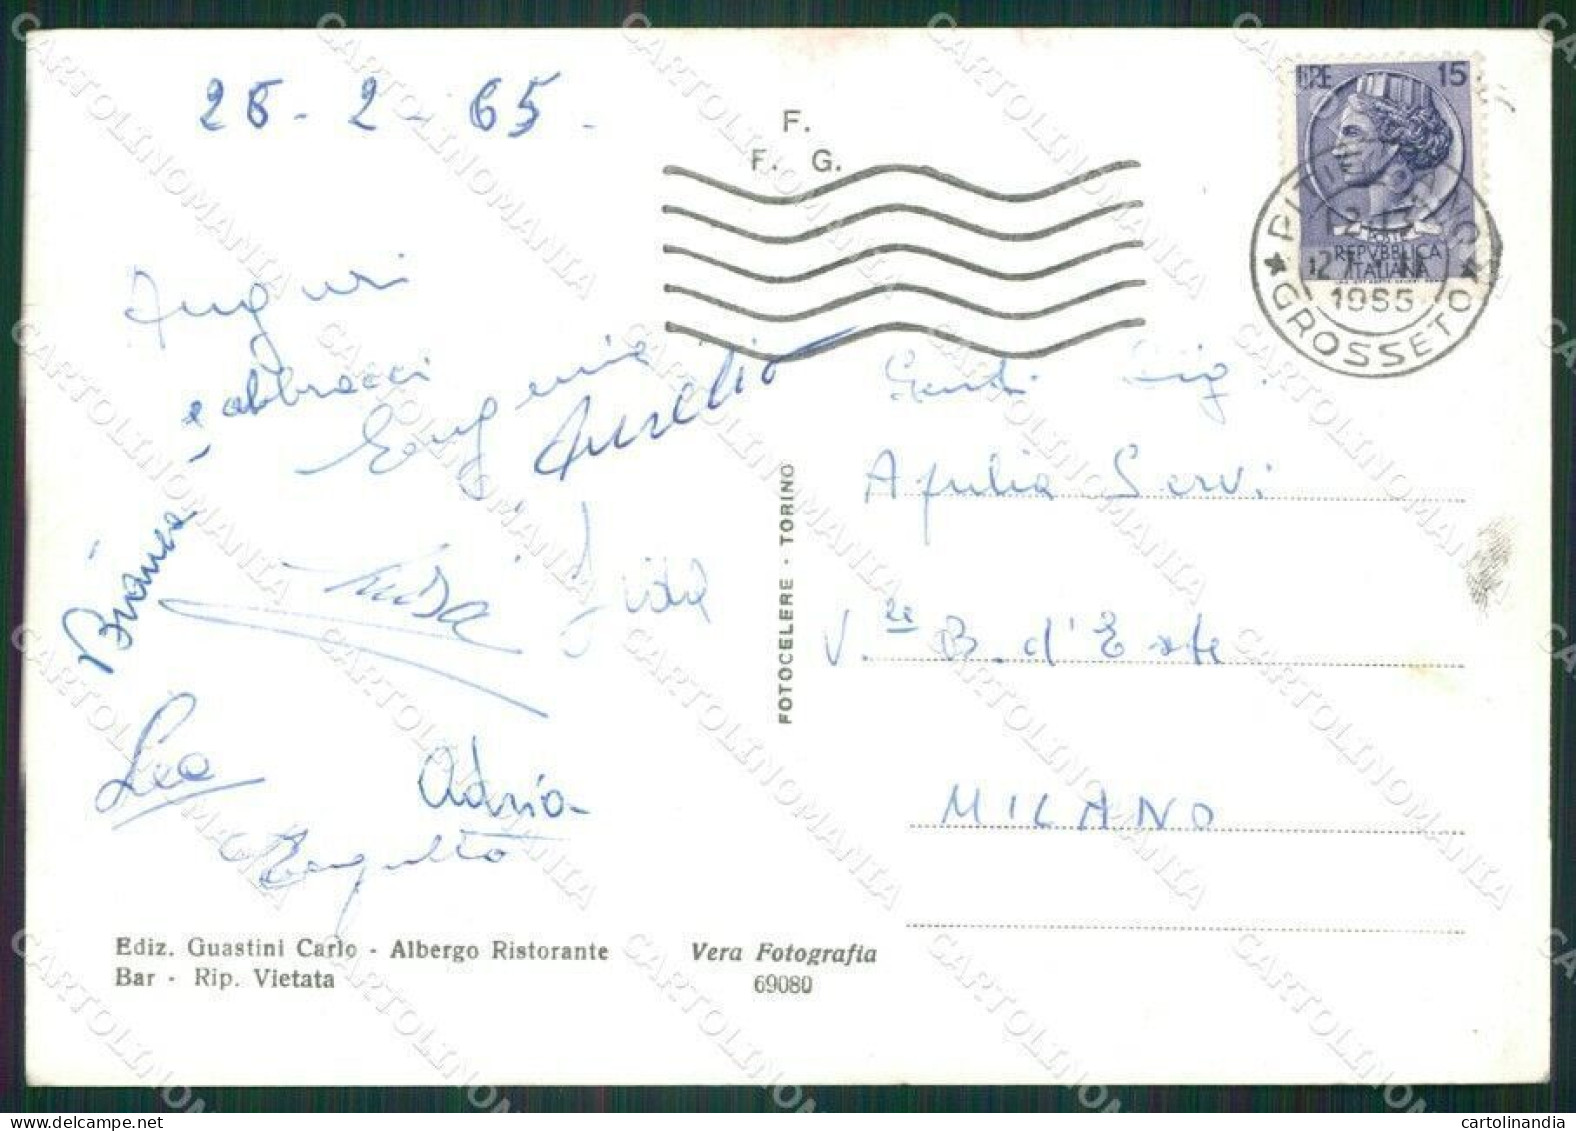 26 - 2 - 65 -
F.
F. G.
LIRE 15
POSTE
REPVBBLICA
ITALIANA
PITIGLIANO
12-13
1965
* GROSSETO *
Auguri
e abbracci
Eugenia
Aurelio
Bianca
Luisa
Lea
Adria
Gent. Sig.
Servi
V.le B. d'Este
MILANO
FOTOCELERE - TORINO
Ediz. Guastini Carlo - Albergo Ristorante
Bar - Rip. Vietata
Vera Fotografia
69080
CARTOLINOMANIA
cartolinandia